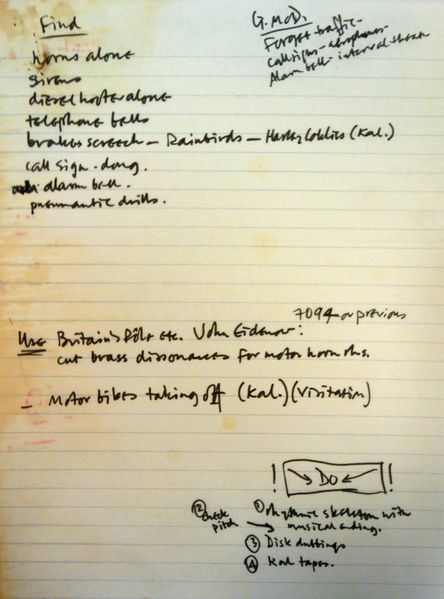 Find
horns alone
sirens
diesel hooter alone
telephone bells
brakes screech – Rainbirds – Harley Cokliss (Kal.)
call sign - dong.
alarm bell.
pneumatic drills.
G.McD.
Forget traffic -
Call signs - aerophones -
Alarm bell - interval theatre
7094 or previous
Use Britain's Rôle etc. John Eidenow:
cut brass dissonances for motor horn rhs.
– Motor bikes taking off (Kal.) (Visitation)
! Do !
① rhythmic skeleton with
musical ending.
② check
pitch
③ Disk dubbings
④ Kal tapes.